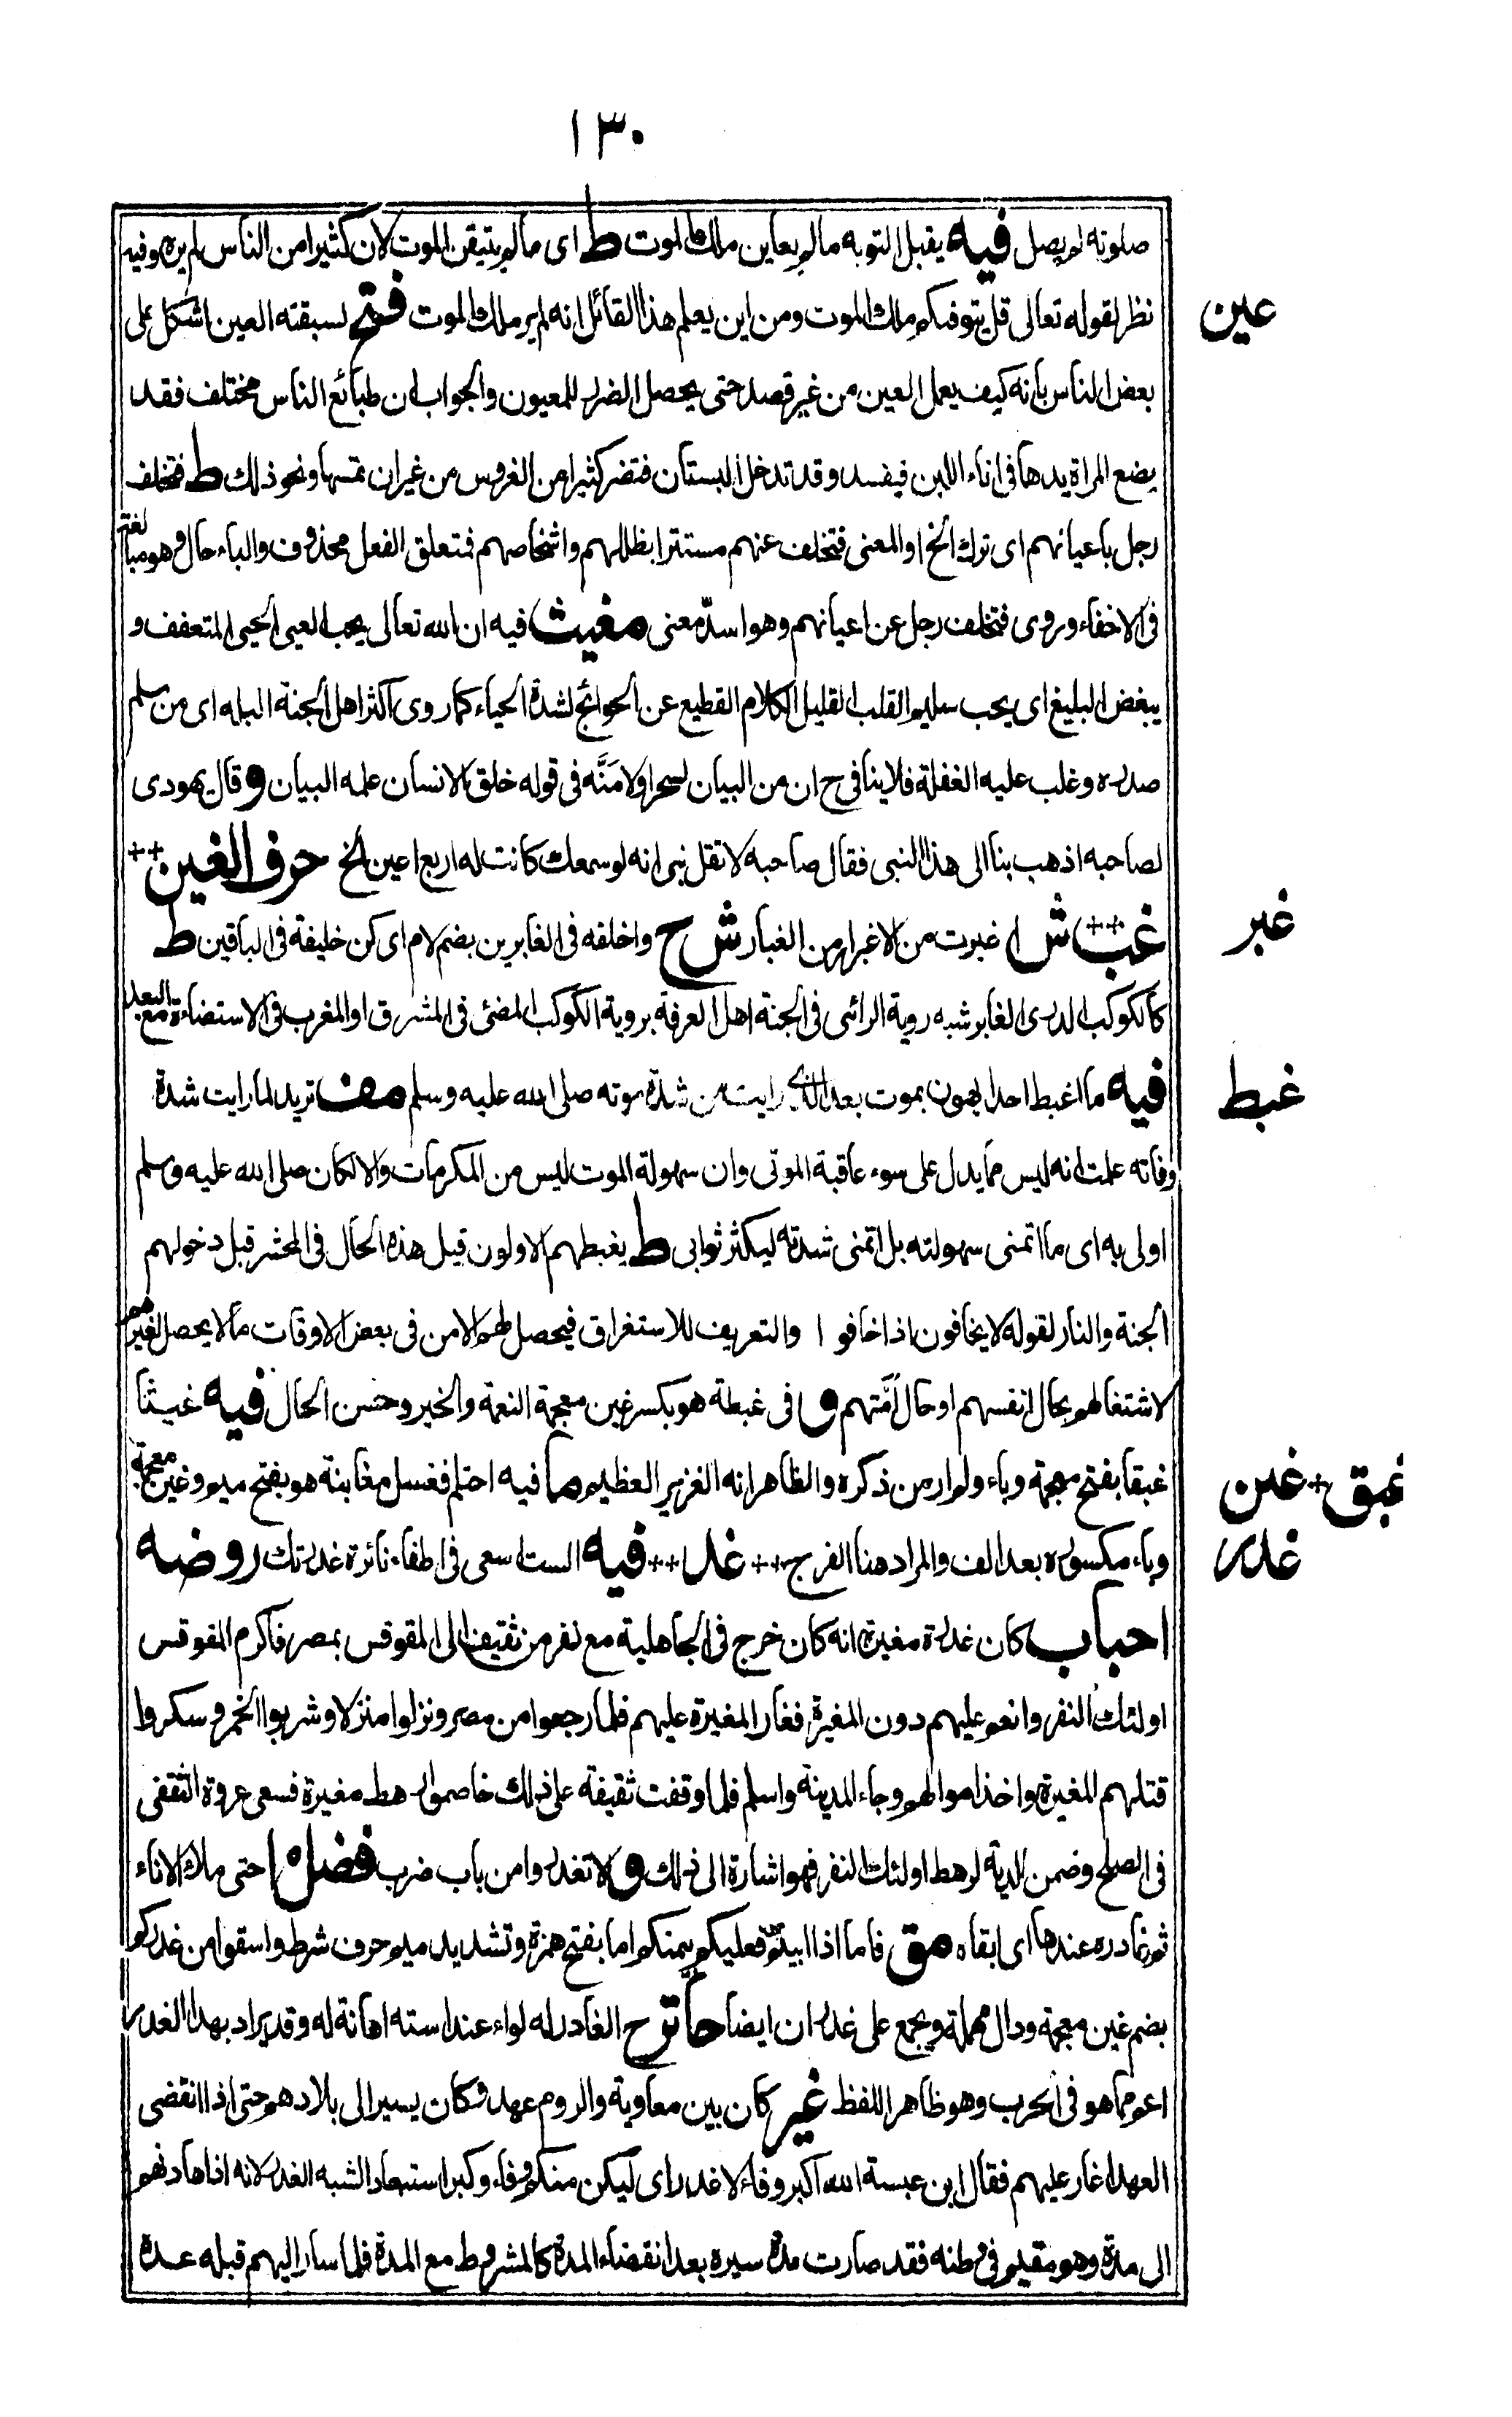 ١٣٠
صلوته لم يصل فيه يقبل التوبه ما لم يعاين ملك الموت ط اى ما لم يتيقن الموت لان كثيرا من الناس لم يره وفيه
نظر لقوله تعالى قل يتوفىكم ملك الموت ومن اين يعلم هذا القائل انه لم ير ملك الموت فتح لسبقته العين اشكل على
عين
بعض الناس بانه كيف يعمل العين من غير قصد حتى يحصل الضرر للمعيون والجواب ان طبائع الناس مختلف فقد
يضع المراة يدها فى اناء اللبن فيفسد وقد تدخل البستان فتضر كثيرا من الغروس من غير ان تمسها ونحو ذلك ط فتخلف
رجل باعيانهم اى ترك الخ او المعنى فتخلف عنهم مستترا بظلالهم واشخاصهم فتعلق الفعل محذوف والباء حال وهو مبالغة
فى الاخفاء وروى فتخلف رجل عن اعيانهم وهو اسدّ معنى مغيث فيه ان الله تعالى يحب العيى الحيى المتعفف و
يبغض البليغ اى يحب سليم القلب القليل الكلام القطيع عن الحوائج لشدة الحياء كما روى اكثر اهل الجنة البله اى من سلم
صدره وغلب عليه الغفلة فلا ينافى ح ان من البيان لسحرا ولا مَنَّه فى قوله خلق الانسان علمه البيان و قال يهودى
لصاحبه اذهب بنا الى هذا النبى فقال صاحبه لا تقل نبى انه لو سمعك كانت له اربع اعين الخ حرف الغين++
غب++ ش ا غبرت من الاغبرار من الغبار ش ح واخلفه فى الغابرين بضم لام اى كن خليفة فى الباقين ط
غبر
كالكوكب الدرى الغابر شبه روية الرائى فى الجنة اهل الغرفة بروية الكوكب المضئ فى المشرق او المغرب فى الاستضاءة مع البعد
فيه ما اغبط احدا بهون بموت بعد الذى رايت من شدة موته صلى الله عليه وسلم مف تريد لما رايت شدة
غبط
وفاته علمت انه ليس مما يدل على سوء عاقبة الموتى وان سهولة الموت ليس من المكرمات والا لكان صلى الله عليه وسلم
اولى به اى ما اتمنى سهولته بل اتمنى شدته ليكثر ثوابى ط يغبطهم الاولون قيل هذه الحال فى المحشر قبل دخولهم
الجنة والنار لقوله لا يخافون اذا خافوا والتعريف للاستغراق فيحصل لهم الامن فى بعض الاوقات ما لا يحصل لغيرهم
لاشتغالهم بحال انفسهم او حال اُمّتهم و فى غبطة هو بكسر غين معجمة النعمة والخير وحسن الحال فيه غيثا
غبقا بفتح مهجمة وباء ولم ار من ذكره والظاهر انه الغزير العظيم ما فيه احتلم فغسل مغابنة هو بفتح ميم وغين معجمة
غبق + غبن
وباء مكسورة بعد الف والمراد هنا الفرج ++ غد ++ فيه الست اسعى فى اطفاء نائرة غدرتك روضه
غدر
احباب كان غدرة مغيرة انه كان خرج فى الجاهلية مع نفر من ثقيف الى المقوقس بمصر فاكرم المقوقس
اولئك النفر وانعم عليهم دون المغيرة فغار المغيرة عليهم فلما رجعوا من مصر ونزلوا منزلا وشربوا الخمر وسكروا
قتلهم المغيرة واخذ اموالهم وجاء المدينة واسلم فلما وقفت ثقيفة على ذلك خاصموا رهط مغيرة فسعى عروة الثقفى
فى الصلح وضمن الدية لرهط اولئك النفر فهو اشارة الى ذلك و لا تغدروا من باب ضرب فضل ا حتى ملاء الاناء
ثم غادره عندها اى ابقاه مق فاما اذا ابيتم فعليكم بيمنكم اما بفتح همزة وتشديد ميم حرف شرط واسقوا من غدركم
بضم غين معجمة ودال مهملة ويجمع على غدران ايضا حا تو ح الغادر له لواء عند استه اهانة له وقد يراد بهذا الغدر
اعم مما هو فى الحرب وهو ظاهر اللفظ غير كان بين معاوية والروم عهد فكان يسير الى بلادهم حتى اذا انقضى
العهد اغار عليهم فقال ابن عبسة الله اكبر وفاء لا غدر اى ليكن منكم وفاء وكبر استبعاد الشبه الغدر لانه اذا هادنهم
الى مدة وهو مقيم فى وطنه فقد صارت مدة سيره بعد انقضاء المدة كالمشروط مع المدة فلما سار اليهم قبله عده